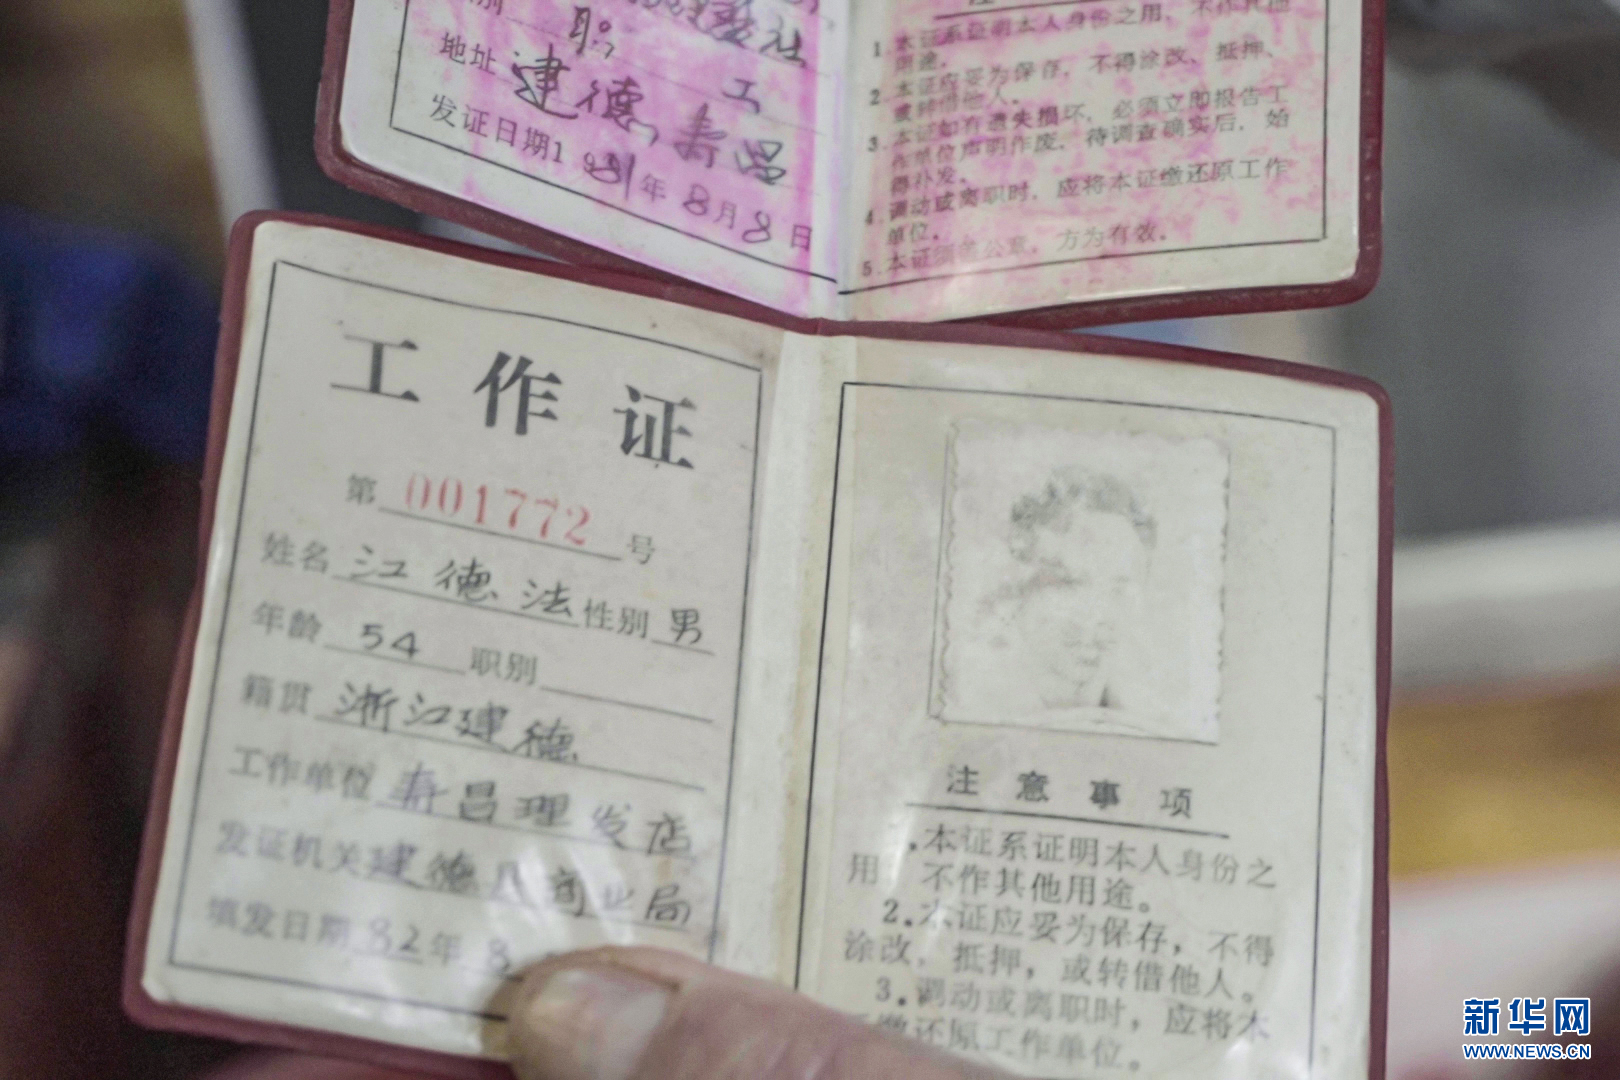 职
工
地址 建德寿昌
发证日期1981年8月8日
1.本证系证明本人身份之用,不作其他
用途。
2.本证应妥为保存,不得涂改、抵押、
或转借他人。
3.本证如有遗失损坏,必须立即报告工
作单位声明作废,待调查确实后,始
得补发。
4.调动或离职时,应将本证缴还原工作
单位。
5.本证须盖公章,方为有效。
工作证
第001772号
姓名 江德法 性别 男
年龄 54 职别
籍贯 浙江建德
工作单位 寿昌理发店
发证机关 建德县商业局
填发日期 82年8
注意事项
.本证系证明本人身份之
用,不作其他用途。
2.本证应妥为保存,不得
涂改、抵押,或转借他人。
3.调动或离职时,应将本
缴还原工作单位。
新华网
WWW.NEWS.CN